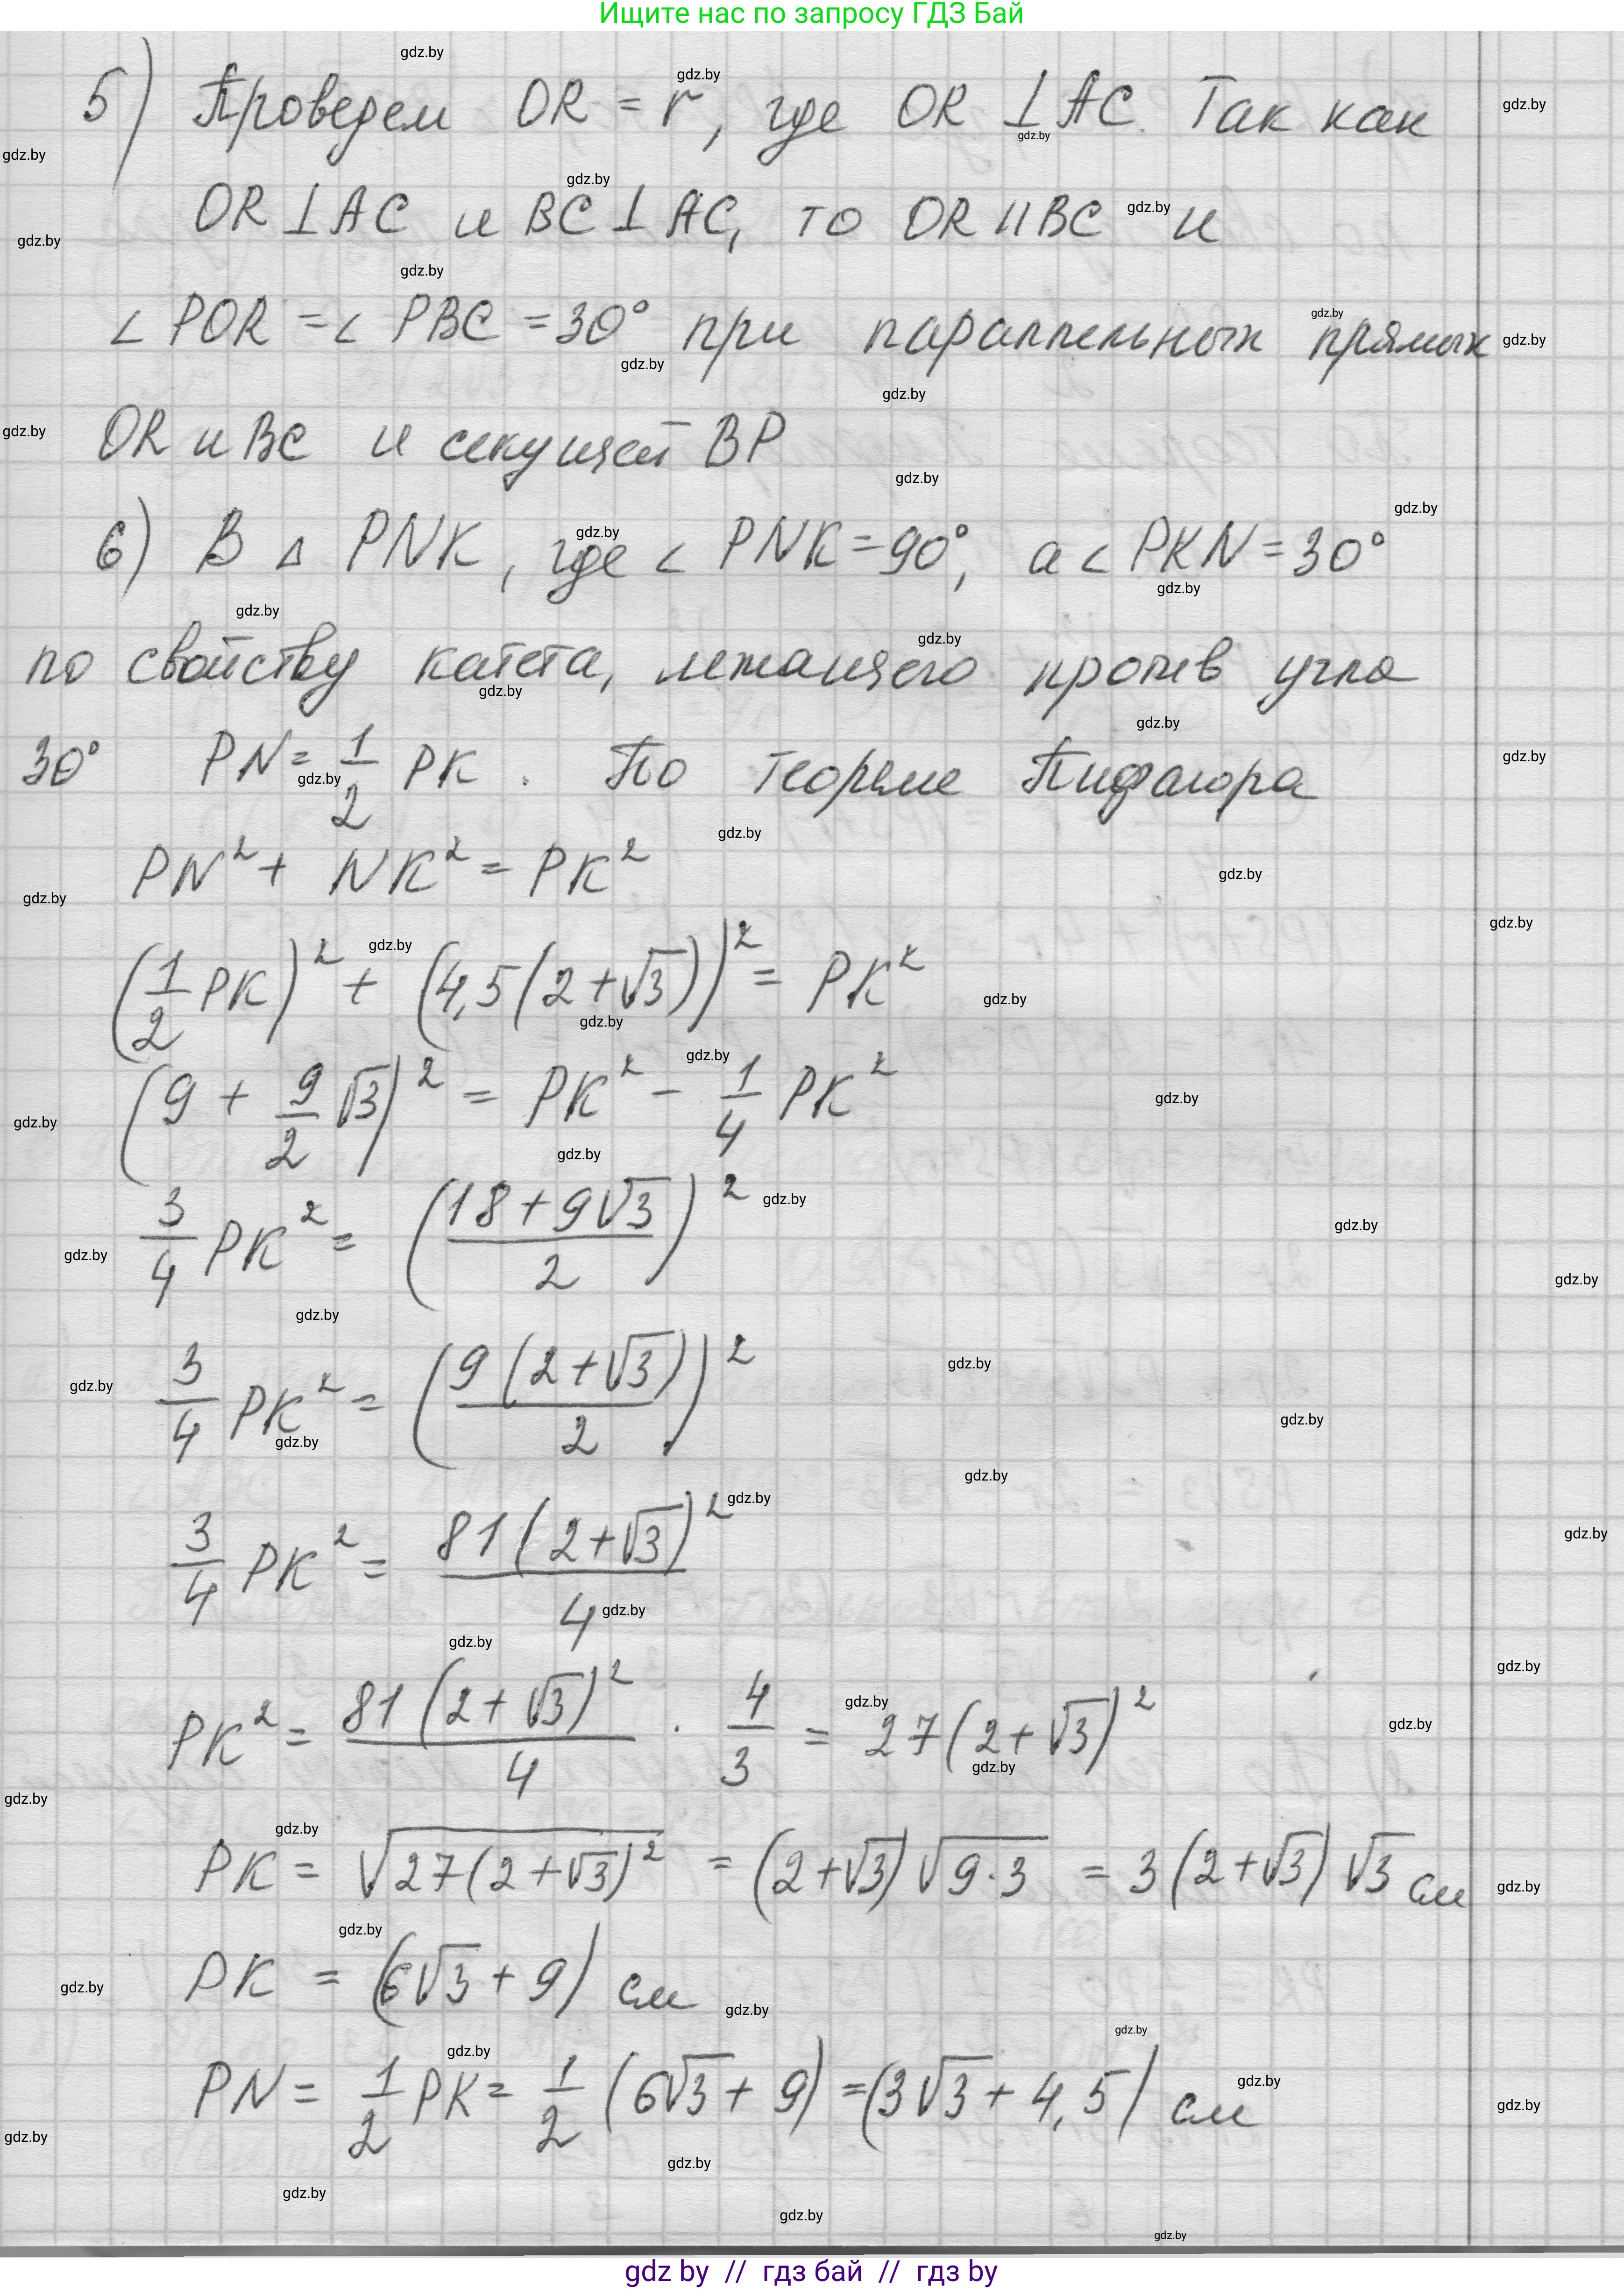 Ищите нас по запросу ГДЗ Бай
5) Проведем OR = r, где OR ⊥ AC. Так как
OR ⊥ AC и BC ⊥ AC, то OR || BC и
∠ POR = ∠ PBC = 30° при параллельных прямых
OR и BC и секущей BP
6) В Δ PNK, где ∠ PNK = 90°, а ∠ PKN = 30°
по свойству катета, лежащего против угла
30° PN = 1/2 PK. По теореме Пифагора
PN² + NK² = PK²
(1/2 PK)² + (4,5(2+√3))² = PK²
(9 + 9/2 √3)² = PK² - 1/4 PK²
3/4 PK² = ((18+9√3)/2)²
3/4 PK² = (9(2+√3)/2)²
3/4 PK² = 81(2+√3)²/4
PK² = 81(2+√3)²/4 · 4/3 = 27(2+√3)²
PK = √(27(2+√3)²) = (2+√3)√(9·3) = 3(2+√3)√3 см
PK = (6√3 + 9) см
PN = 1/2 PK = 1/2 (6√3 + 9) = (3√3 + 4,5) см
gdz by // гдз бай // гдз by